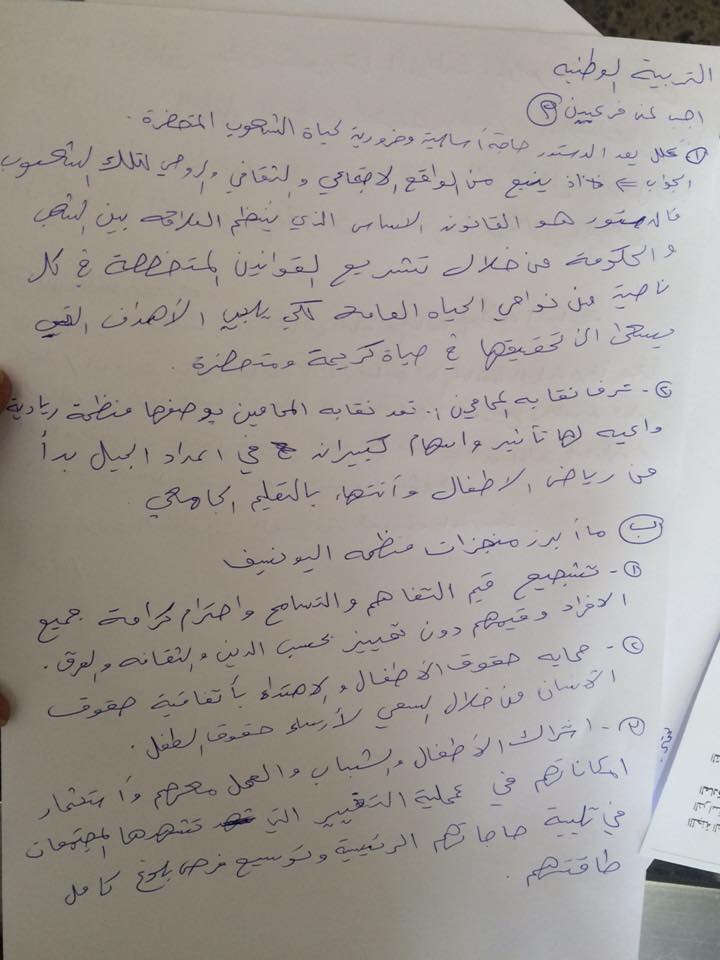 التربية الوطنية
اجب عن فرعيين
① علل يعد الدستور حاجة أساسية وضرورية لحياة الشعوب المتحضرة.
الجواب ⇐ اذ ينبع من الواقع الاجتماعي والثقافي والروحي لتلك الشعوب
فالدستور هو القانون الاساس الذي ينظم العلاقه بين الشعب
والحكومة من خلال تشريع القوانين المتخصصة في كل
ناحية من نواحي الحياه العامه لكي يلبي الأهداف التي
يسعى الى تحقيقها في حياة كريمة ومتحضرة.
②- عرف نقابه المحامين :. تعد نقابه المحامين بوصفها منظمة ريادية
واعيه لها تأثير واسهام كبيران في اعداد الجيل بدأ
من رياض الاطفال وأنتهاء بالتعليم الجامعي
ب ما أبرز منجزات منظمه اليونسيف
①- تشجيع قيم التفاهم والتسامح واحترام كرامة جميع
الافراد وقيمهم دون تمييز بحسب الدين والثقافه والعرق.
②- حمايه حقوق الأطفال والاهتداء بأتفاقية حقوق
الانسان من خلال السعي لأرساء حقوق الطفل.
③- اشراك الأطفال والشباب والعمل معهم وأستثمار
امكاناتهم في عملية التغيير التي تشهدها المجتمعات
في تلبية حاجاتهم الرئيسية وتوسيع فرص بلوغ كامل
طاقتهم.